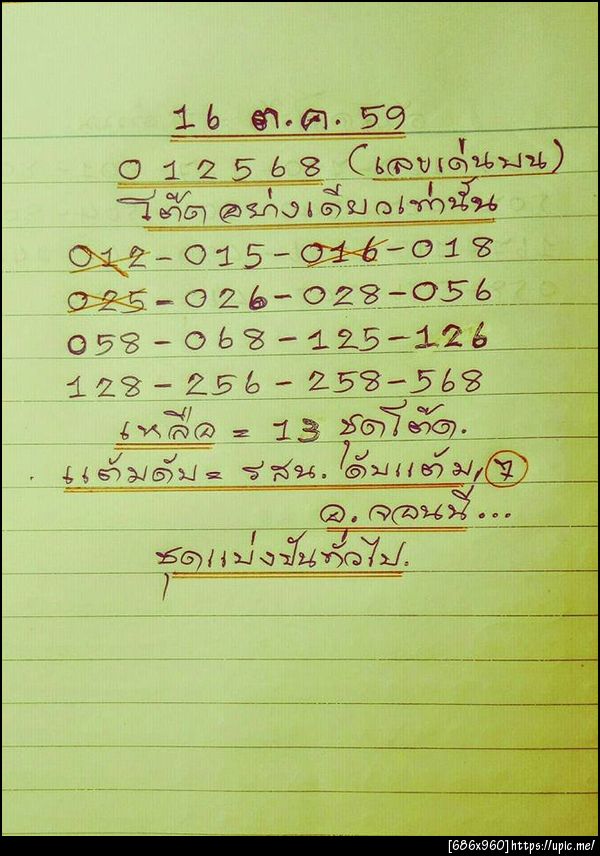 16 ต.ค. 59
012568 (เลขเด่นบน)
โต๊ดอย่างเดียวเท่านั้น
012-015-016-018
025-026-028-056
058-068-125-126
128-256-258-568
เหลือ = 13 ชุดโต๊ด.
แต้มดับ = รสน. ดับแต้ม, 7
อ. จอนนี่...
ชุดแบ่งปันทั่วไป.
[686x960]https://upic.me/